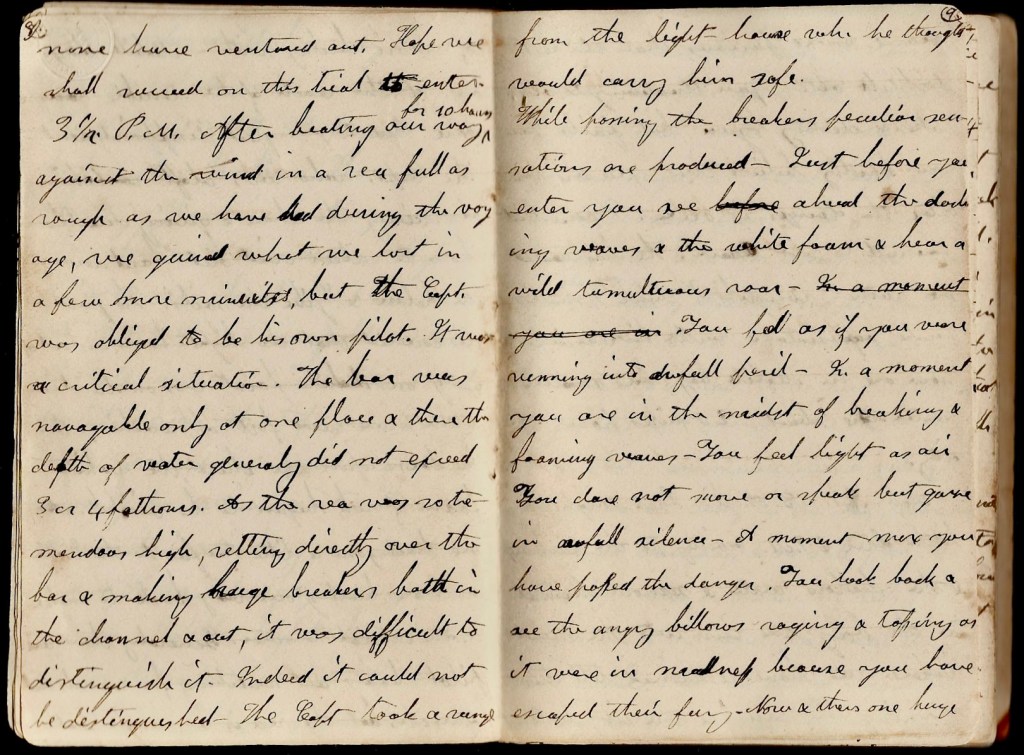 none have ventured out. Hope we
shall succeed on this trial to enter.
for 10 hours
3 1/2 P.M. After beating our way
against the wind in a sea full as
rough as we have had during the voy
age, we gained what we lost in
a few more minutes, but the Capt.
was obliged to be his own pilot. It was
a critical situation. The bar was
navagable only at one place & there the
depth of water generaly did not exceed
3 or 4 fathoms. As the sea was so tre
mendous high, setting directly over the
bar & making huge breakers both in
the channel & out, it was difficult to
distinguish it. Indeed it could not
be destinguished — The Capt took a range
9
from the light house wh. he thought
would carry him safe.
While passing the breakers peculiar sen
sations are produced — Just before you
enter you see before ahead the dash
ing waves & the white foam & hear a
wild tumultuous roar — In a moment
you are in You feel as if you were
running into awfull peril — In a moment
you are in the midst of breaking &
foaming waves — You feel light as air
You dare not move or speak but gaze
in awfull silence — A moment more you
have passed the danger. You look back &
see the angry billows raging & tossing as
it were in madness because you have
escaped their fury — Now & then one huge